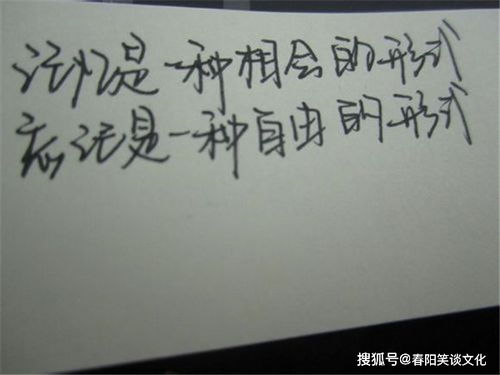 记忆是一种相会的形式
忘记是一种自由的形式
搜狐号@春阳笑谈文化